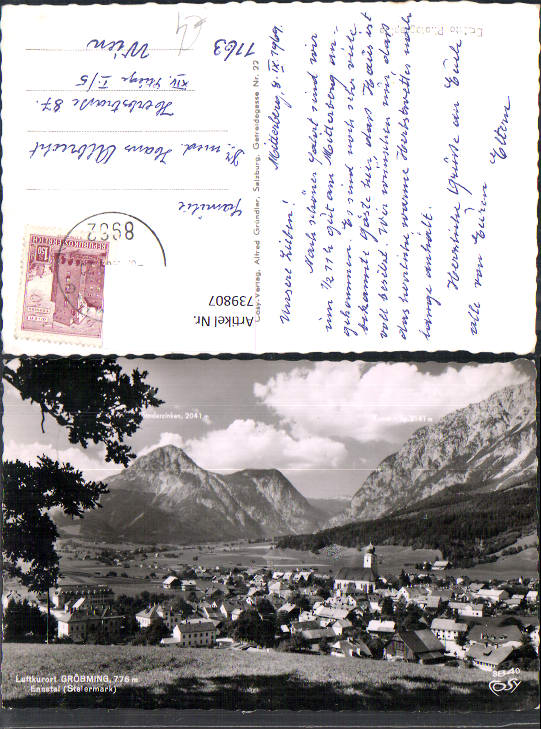 Echte Photographie
Mitterberg, 8. IX. 1969.
Unsere Lieben!
Nach schöner Fahrt sind wir
um ½ 11 h gut am Mitterberg an-
gekommen. Es sind noch sehr viele
bekannte Gäste hier, das Haus ist
voll besetzt. Wir wünschen nur das
das herrliche warme Herbstwetter noch
lange anhält.
Herzliche Grüße an Euch
alle von Euren Eltern
Cosy-Verlag, Alfred Gründler, Salzburg, Getreidegasse Nr. 22
Familie
Dr. med. Hans Albrecht
Herbststraße 87.
XIV. Stiege I/5
1163 Wien
8962
REPUBLIK ÖSTERREICH
1.50
Artikel Nr.
739807
2041 m
Luftkurort GRÖBMING, 776 m
Ennstal (Steiermark)
COSY